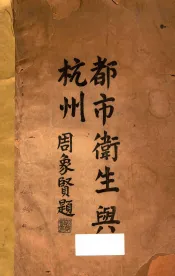 都市衛生與
杭州
周象賢題